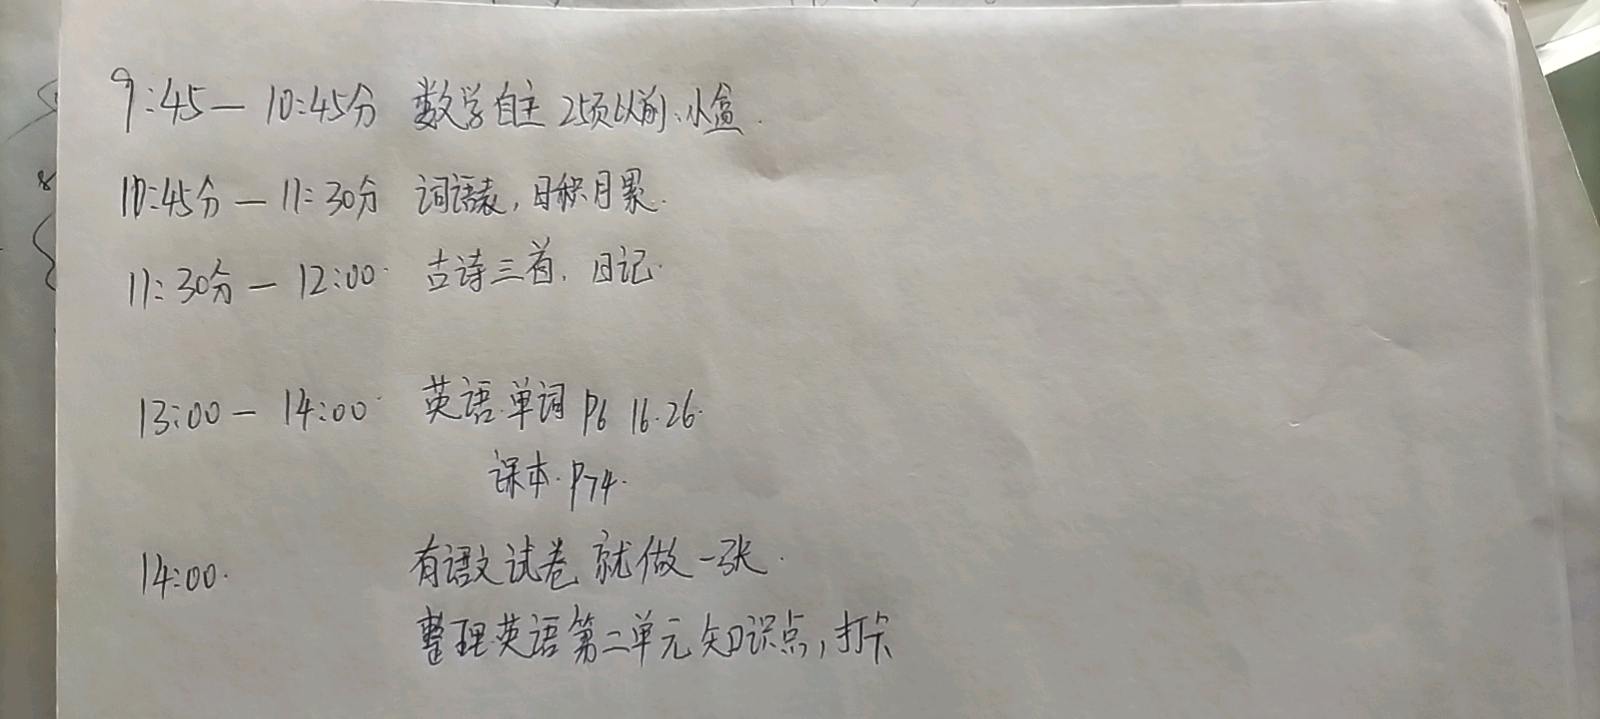 9:45— 10:45分 数学自主 25页以前、小盒.
10:45分 — 11:30分 词语表，日积月累.
11:30分 — 12:00· 古诗三首. 日记·
13:00 — 14:00· 英语.单词 P6 16.26.
课本.P74.
14:00· 有语文试卷就做一张.
整理英语第二单元知识点，打卡